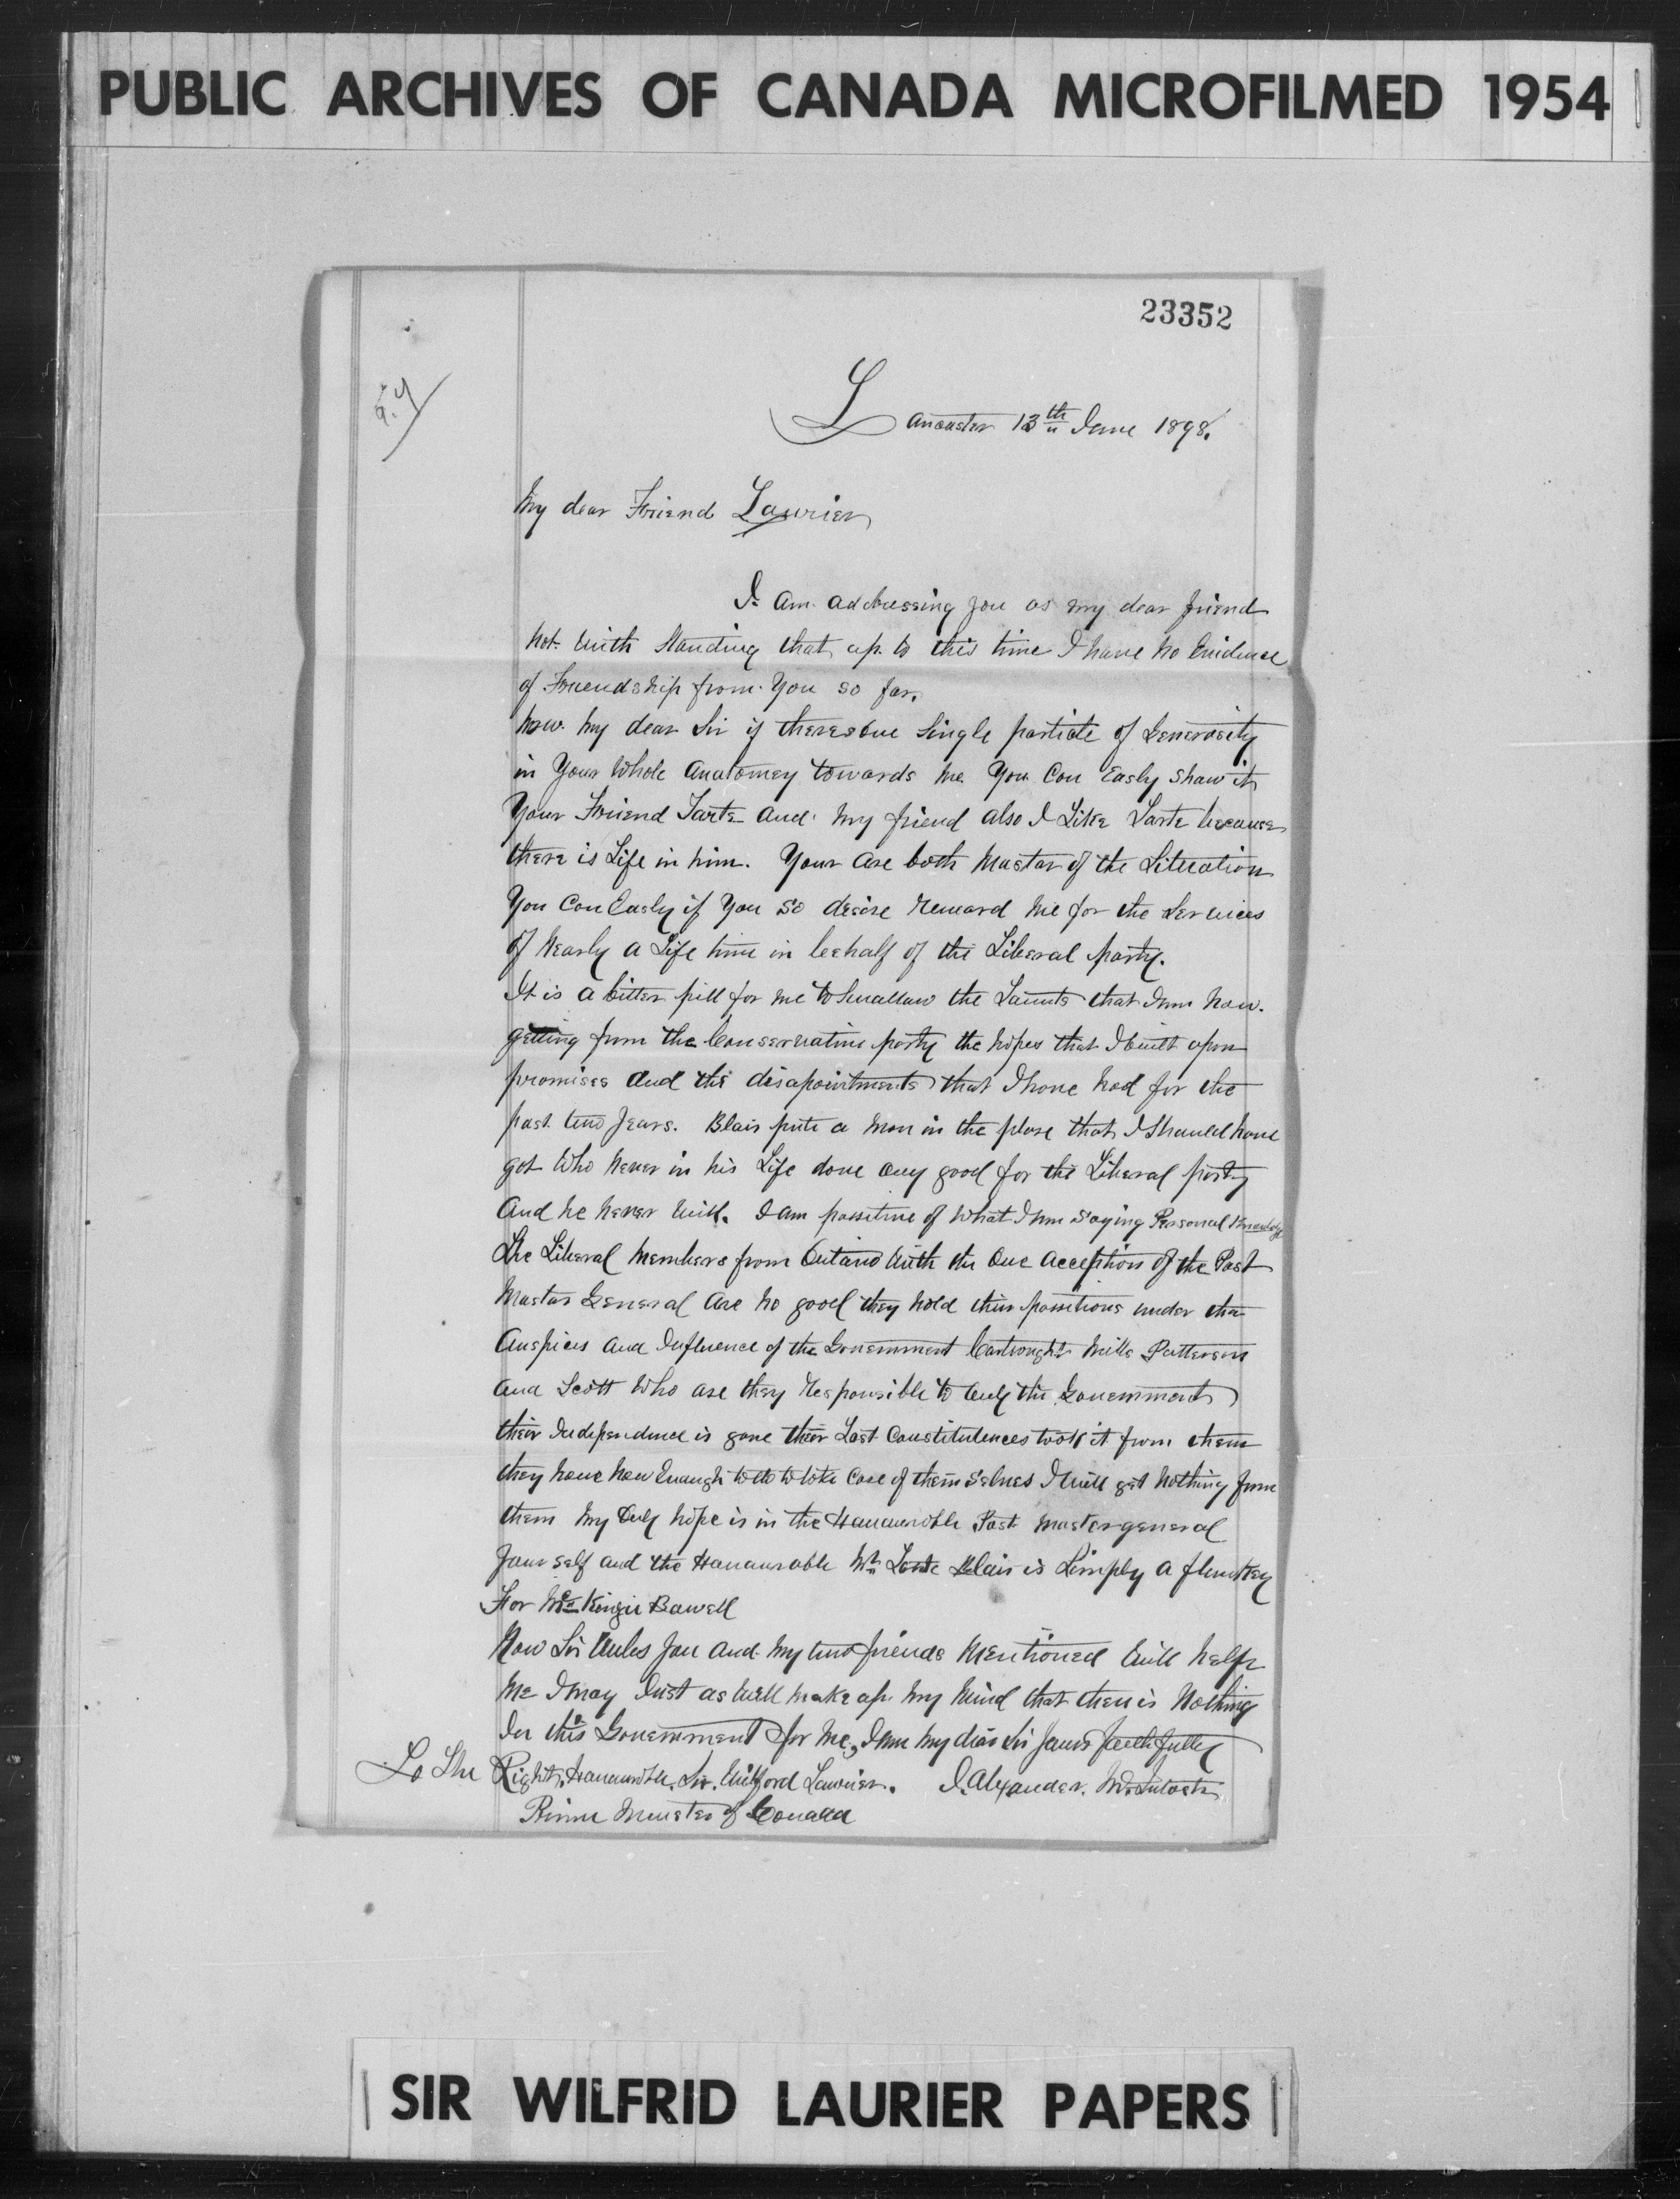 PUBLIC ARCHIVES OF CANADA MICROFILMED 1954
23352
Lancaster 13th June 1898.
My dear Friend Laurier
I am addressing you as my dear friend
Not with standing that up to this time I have no Evidence
of Friendship from You so far.
Now my dear Sir if theres one Single particle of Generosity
in Your Whole Anatomey towards me You Can Easly shaw it
Your Friend Tarte and my friend also I Like Tarte because
there is Life in him. Your are both Mastar of the Situation
You Can Easly if You so desire Reward me for the Services
of Nearly a Life time in behalf of the Liberal party.
It is a bitter pill for me to Swallow the Taunts that I am Now
getting from the Conservative party the hopes that I built upon
promises and the disapointments that I have had for the
past two years. Blair puts a man in the place that I Should have
got Who Never in his Life done any good for the Liberal party
And he never will. I am possitive of What I am Saying Personal Knowledge
The Liberal Members from Ontario With the One acception of the Post
Mastar General Are No good they hold their possitions under the
Auspices and Influence of the Government Cartwright Mills Patterson
and Scott Who are they Responsible to only the Government
their Independence is gone their Last Constituences took it from them
they have Now Enough to do to take Care of them Selves I will get Nothing from
them My Only hope is in the Hanaurable Post Master general
Your Self and the Hanaurable Mr Tarte Blair is Simply a flunkey
For McKenzie Bawell
Now Sir Unles You and my two friends Mentioned Will help
Me I may Just as Well make up My Mind that there is Nothing
In this Government for Me, I am My dear Sir Yours faithfully
To The Right Hanaurable. Sir. Wilford Laurier. D. Alexander. McIntosh
Prime Minister of Canada
SIR WILFRID LAURIER PAPERS